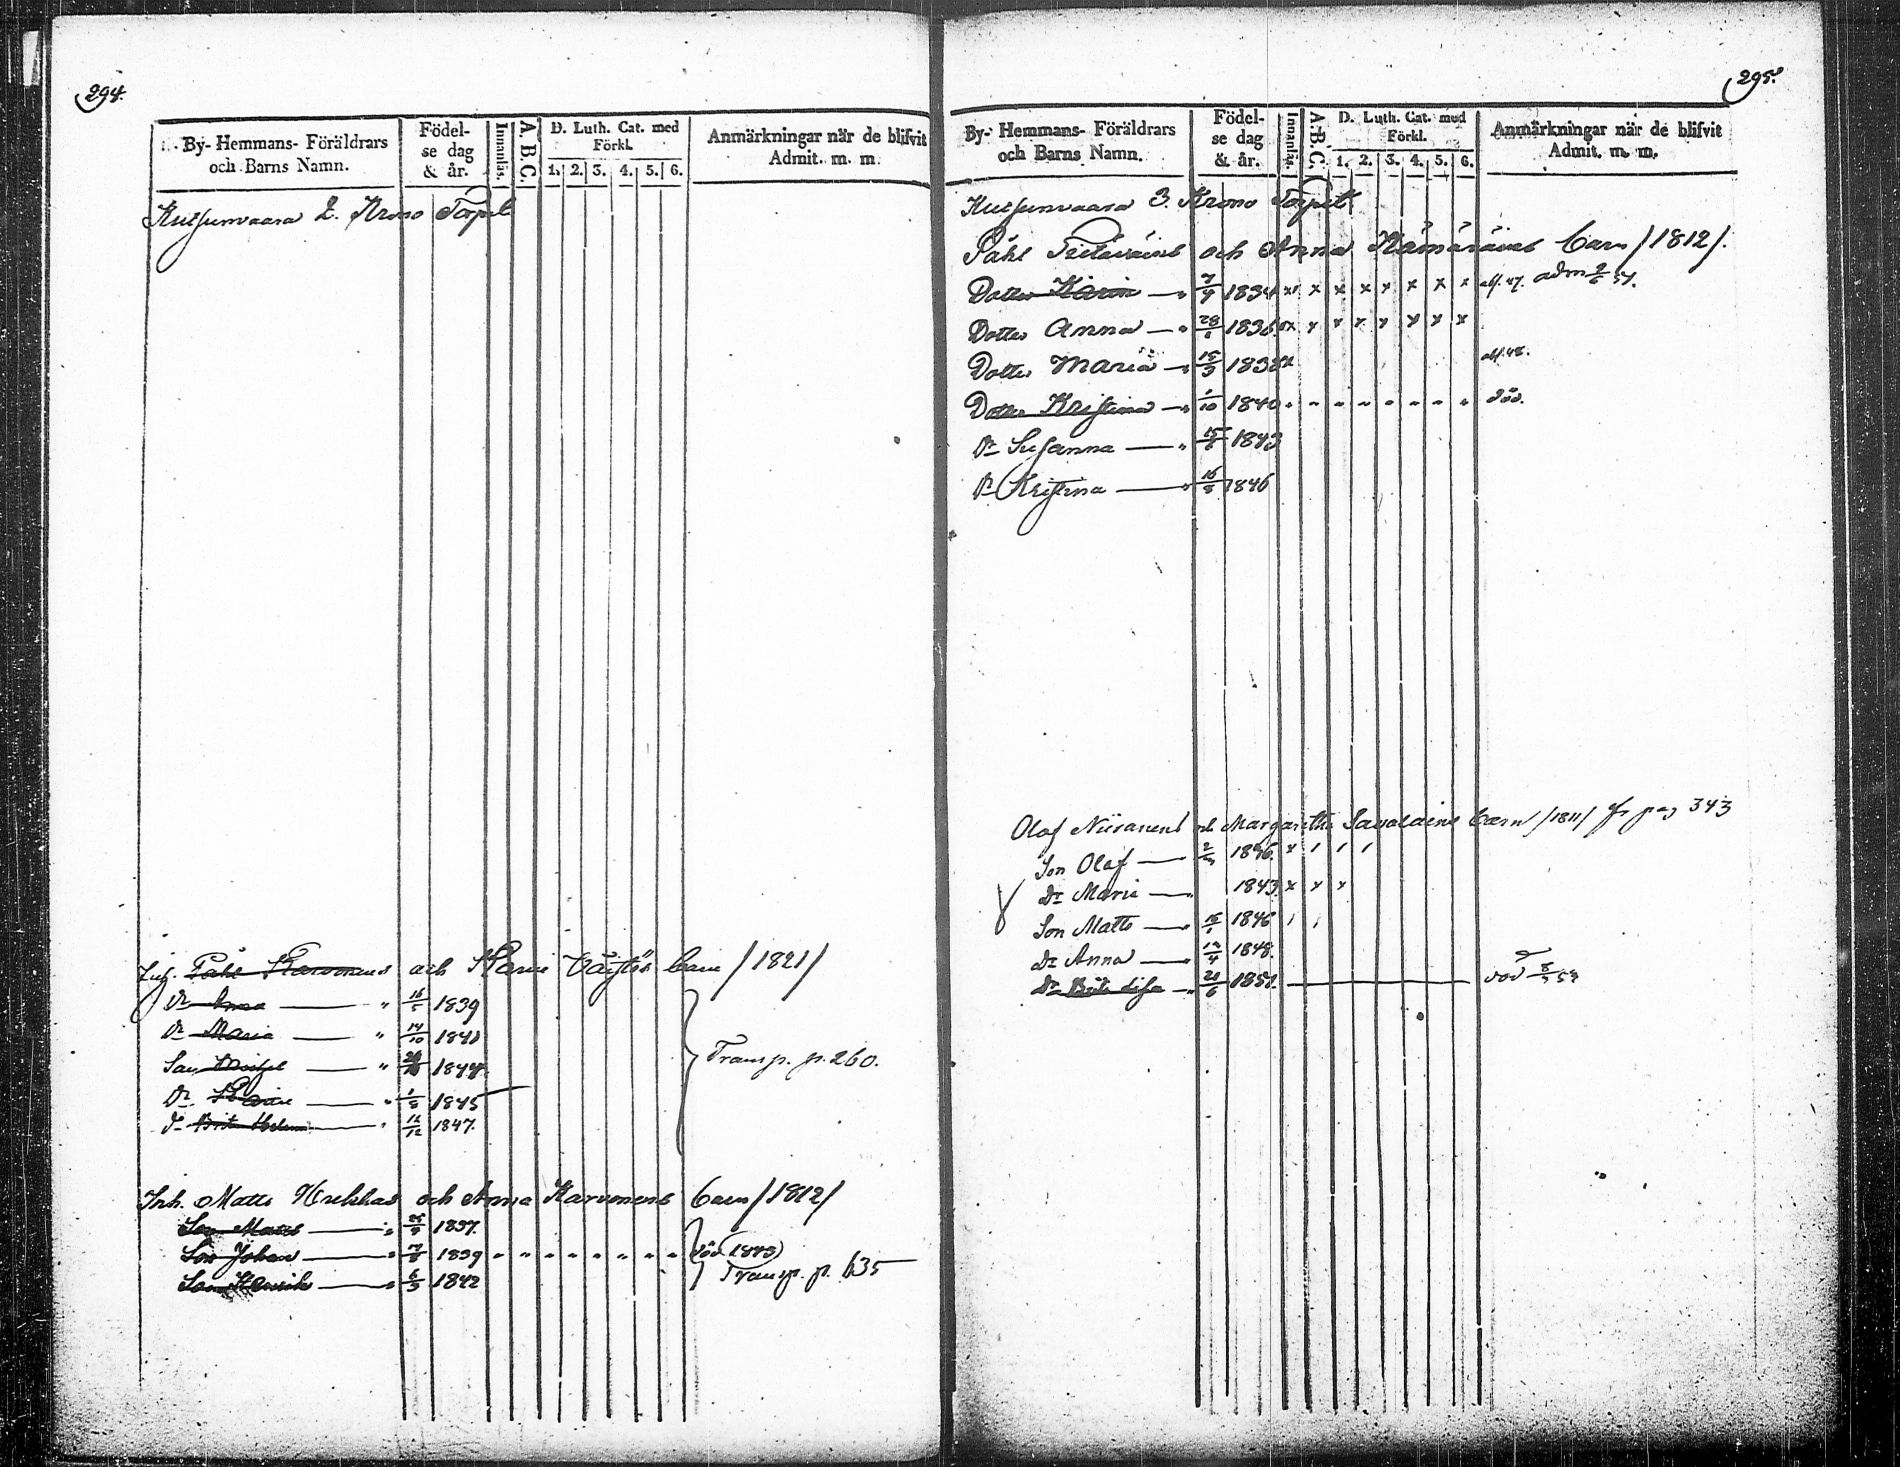 294.
By- Hemmans- Föräldrars och Barns Namn. Födel-se dag & år. Innanläs. A.B.C. D. Luth. Cat. med Förkl. 1. 2. 3. 4. 5. 6. Anmärkningar när de blifvit Admit. m. m.
2. Krono Torpet
och Karin barn /1821/
Dr Anna — " 16/5 1839
Dr Maria — " 14/10 1841
Son — " 1844
Dr Karin — " 1/8 1845
Dr Brita Helena — " 12/12 1847.
Transp. p. 260.
Inh. Matts och Anna Karvonens barn /1812/
Son Matts — " 1837.
Son Johan — " 1839 " " " " " " " " död (1843)
Son Henrik — " 6/3 1842
Transp. p. 635
295.
By- Hemmans- Föräldrars och Barns Namn. Födel-se dag & år. Innanläs. A.B.C. D. Luth. Cat. med Förkl. 1. 2. 3. 4. 5. 6. Anmärkningar när de blifvit Admit. m. m.
3. Krono Torpet
Påhl och Anna Hämäläines barn /1812/.
Dotter Karin — " 7/4 1834 x x x x x x x x adm
Dotter Anna — " 1836 x x x x x x x x
Dotter Maria — " 15/3 1838
Dotter Kristina — " 1/10 1840 " " " " " " " " död.
Dr Susanna — " 1843
Dr Kristina — " 16/8 1846
Olof Niiranens och Margaretha Savolaines barn /1811/ fr pag 343
Son Olof — " 1836. x / / /
Dr Maria — " 1843. x x x
Son Matts — " 15/1 1846 / /
Dr Anna — " 1848.
Dr Brita Lisa — " 21/6 1851. — död